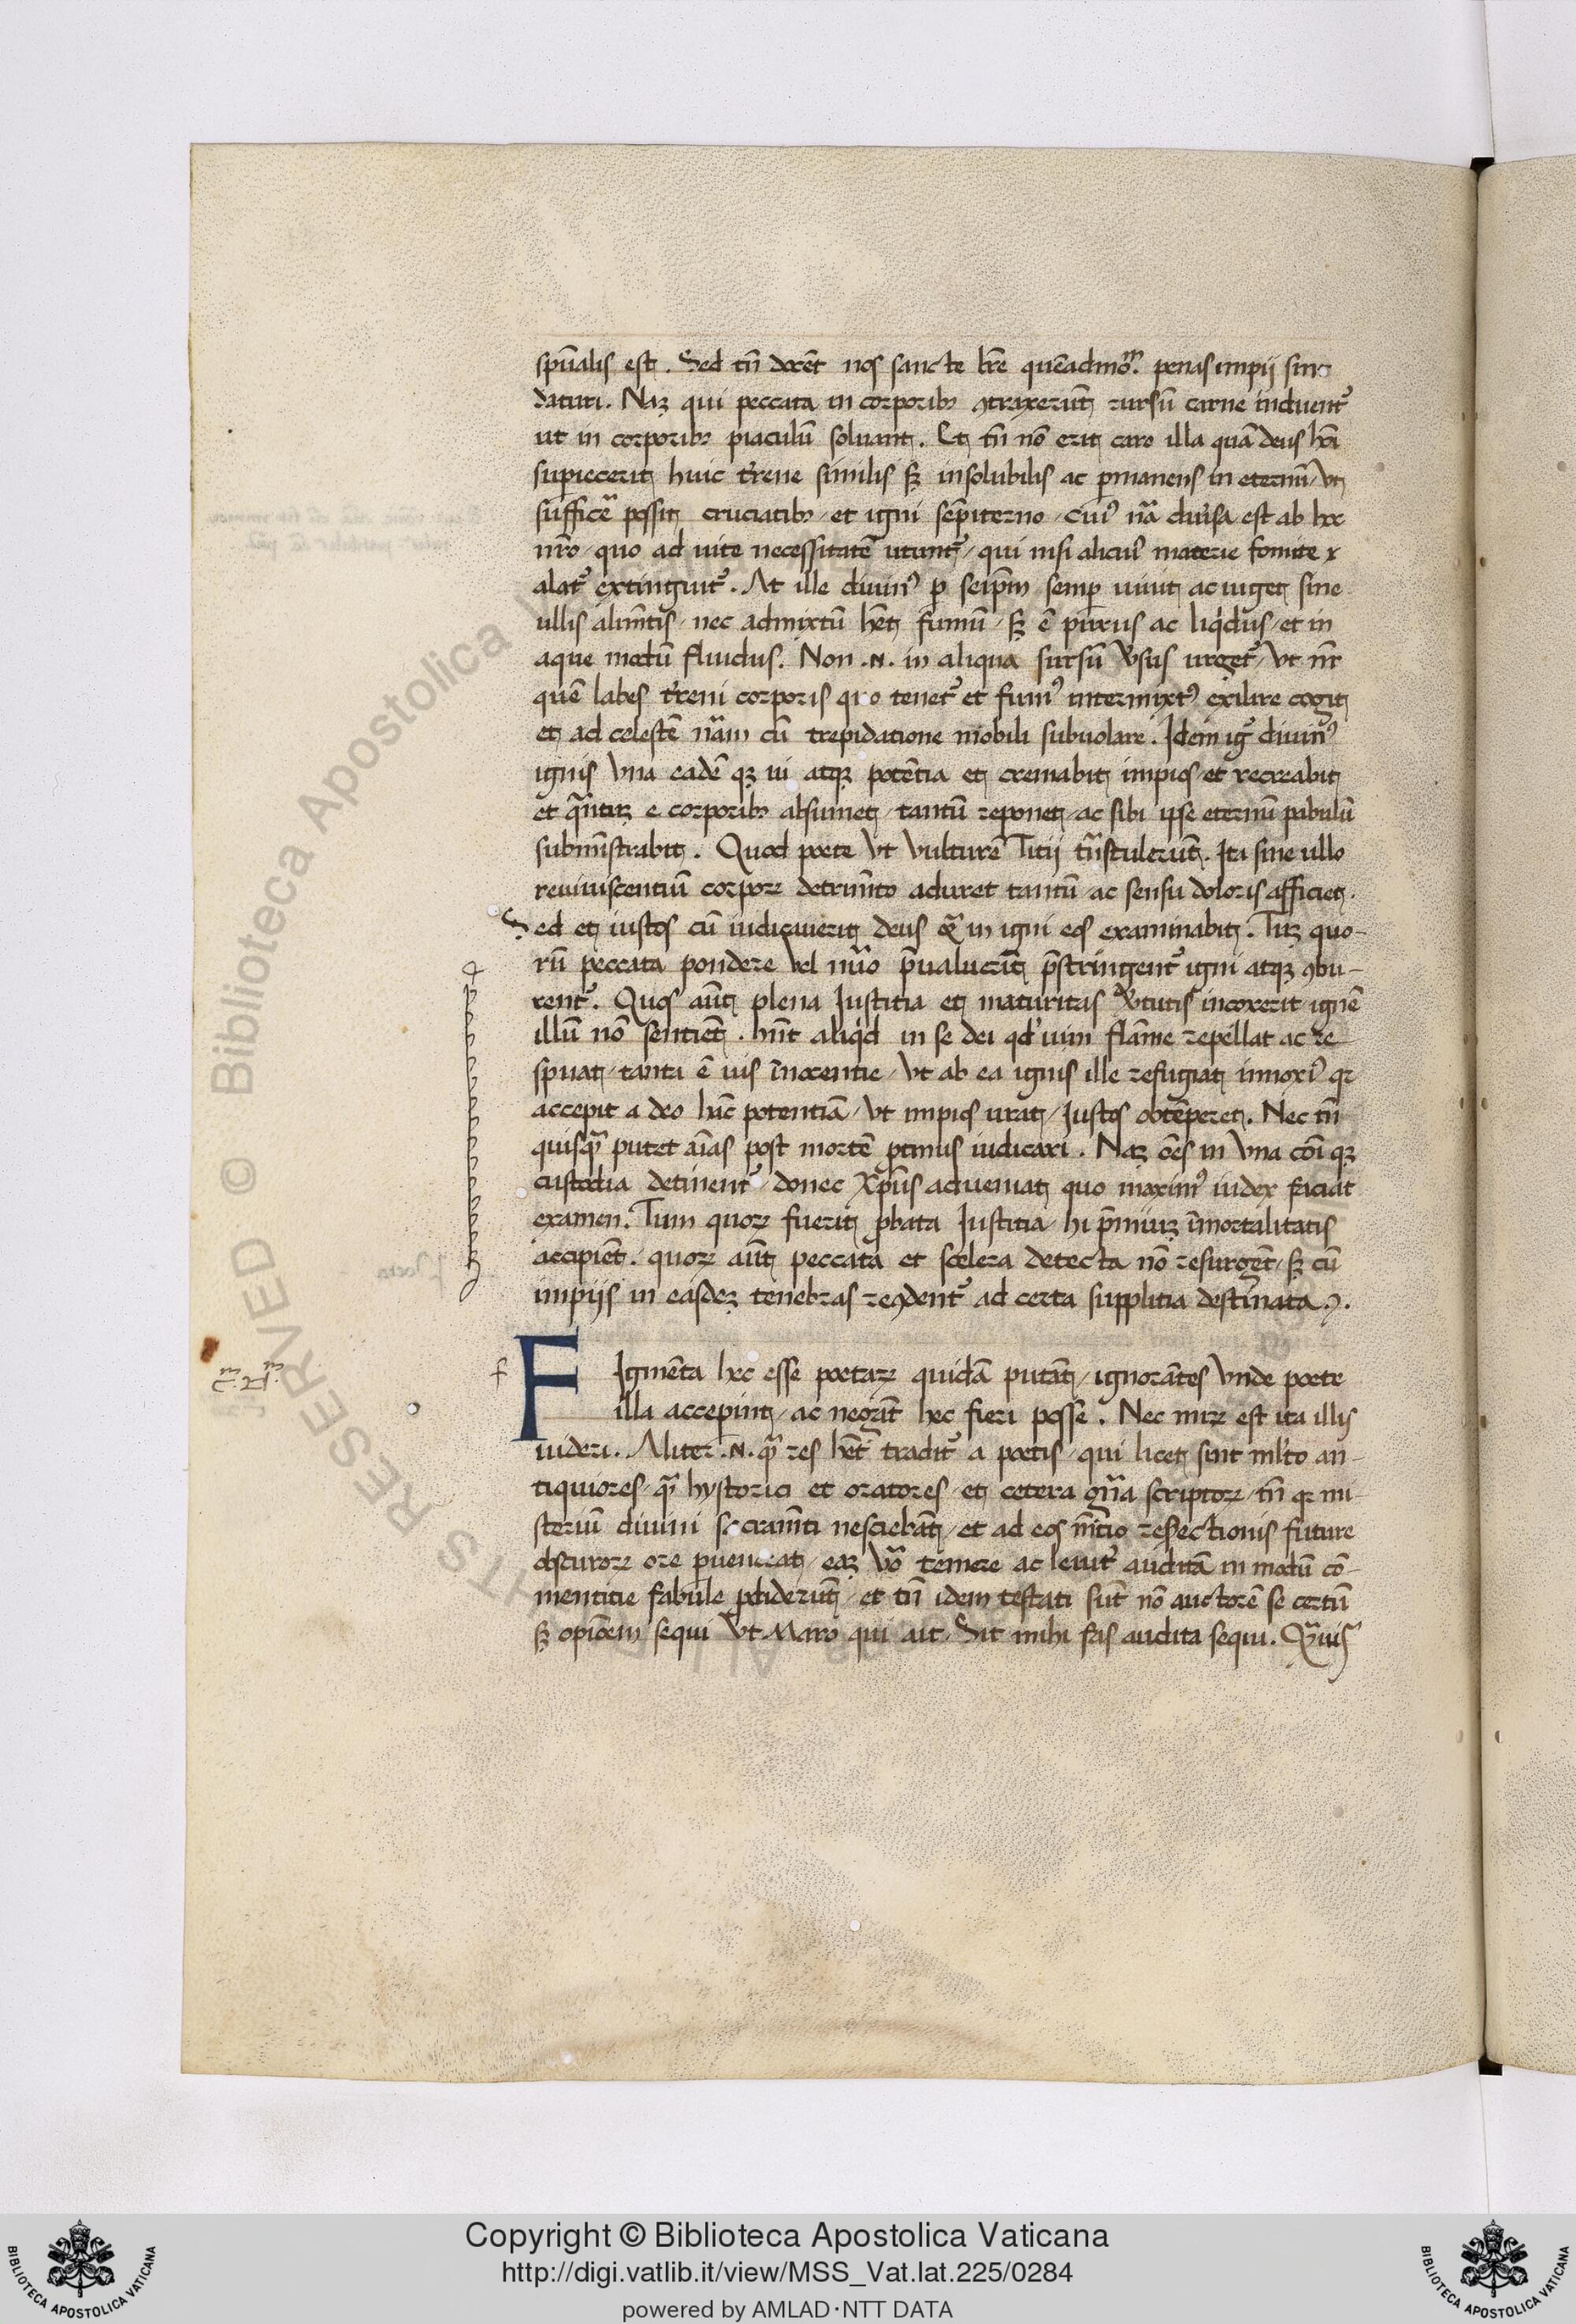 spūalis est. Sed tn̄ docēt nos sancte lr̄e quēadmo.ᵐ penas impij sint
daturi. Naꝫ qui peccata in corporibꝰ ꝯtraxerūt rursū carne induentʳ
ut in corporibꝰ piaculū soluant. Et tn̄ nō erit caro illa quā deus hoī
supiecerit huic t'rene similis sꝫ insolubilis ac ꝑmanens in eternū / ut
sufficē possit cruciatibꝰ / et igni sēpiterno / cuiꝰ nā diu'sa est ab hoc
nr̄o / quo ad uite necessitatē utuntʳ / qui nisi alicuiꝰ materie fomite
alatʳ extinguitʳ. At ille diuinꝰ ꝑ seip̄m semꝑ uiuit ac uiget sine
ullis alim̄tis / nec admixtū hēt fumū / sꝫ ē purus ac liq'dus / et in
aque modū fluidus. Non .N. in aliqua sursū u'sus urgetʳ / ut nr̄
quē labes t'reni corporis quo tenetʳ et fumꝰ intermixtꝰ exilire cogit
et ad celestē nām cū trepidatione mobili subuolare. Idem igʳ diuinꝰ
ignis una eadē qꝫ ui atqꝫ potētia et cremabit impios et recreabit
et qn̄tuꝫ e corporibꝰ absumet / tantū reponet / ac sibi ipse eternū pabulū
submīstrabit. Quod poete ut uulturē Titij tn̄stulerūt. Ita sine ullo
reuiuiscentiū corpoꝝ detrim̄to aduret tantū ac sensu doloris afficiet.
Sed et iustos cū iudicauerit deus eā in igni eos examinabit. Tuꝫ quo-
rū peccata pondere uel nūo p̄ualuerīt p̄stringentʳ igni atqꝫ ꝯbu-
rentʳ. Quos aūt plena Iustitia et maturitas u'tutis incoxerit ignē
illū nō sentiēt. hn̄t aliq'd in se dei qd' uim flāme repellat ac re
spuat / tanta ē uis īnocentie / ut ab ea ignis ille refugiat innoxiꝰ qꝛ
accepit a deo hāc potentiā / ut impios urat / Iustos obtēperet. Nec tn̄
quisqā putet aīas post mortē ꝓtinus iudicari. Naꝫ oēs in una cōi qꝫ
custodia detinentʳ / donec xp̄us adueniat quo maximꝰ iudex faciat
examen. Tum quoꝝ fuerit ꝓbata Iustitia / hi p̄miuꝫ īmortalitatis
accipiēt. quoꝝ aūt peccata et scelera detecta nō resurgēt / sꝫ cū
impijs in easdeꝫ tenebras reꝯdentʳ ad certa supplitia destīnata.
f
FIgmēta hec esse poetaꝝ quidā putāt / ignorātes unde poete
illa acceperint / ac negāt hec fieri posse. Nec miꝝ est ita illis
uideri. Aliter .N. qā res hēt traditʳ a poetis / qui licet sint ml'to an-
tiquiores / qā hystorici et oratores / et cetera gn̄a scriptoꝝ / tn̄ qꝛ mi-
steriū diuini sacram̄ti nesciebāt / et ad eos m̄tio resurectionis future
obscuroꝝ ore ꝑuenerat / eaꝫ uō temere ac leuitʳ auditā in modū cō-
mentitie fabule ꝓdiderūt / et tn̄ idem testati sūt nō auctorē se certū
sꝫ opiōem sequi ut Maro qui ait / Sit mihi fas audita sequi. Qāuis
Copyright © Biblioteca Apostolica Vaticana
http://digi.vatlib.it/view/MSS_Vat.lat.225/0284
powered by AMLAD·NTT DATA
BIBLIOTECA APOSTOLICA VATICANA
BIBLIOTECA APOSTOLICA VATICANA